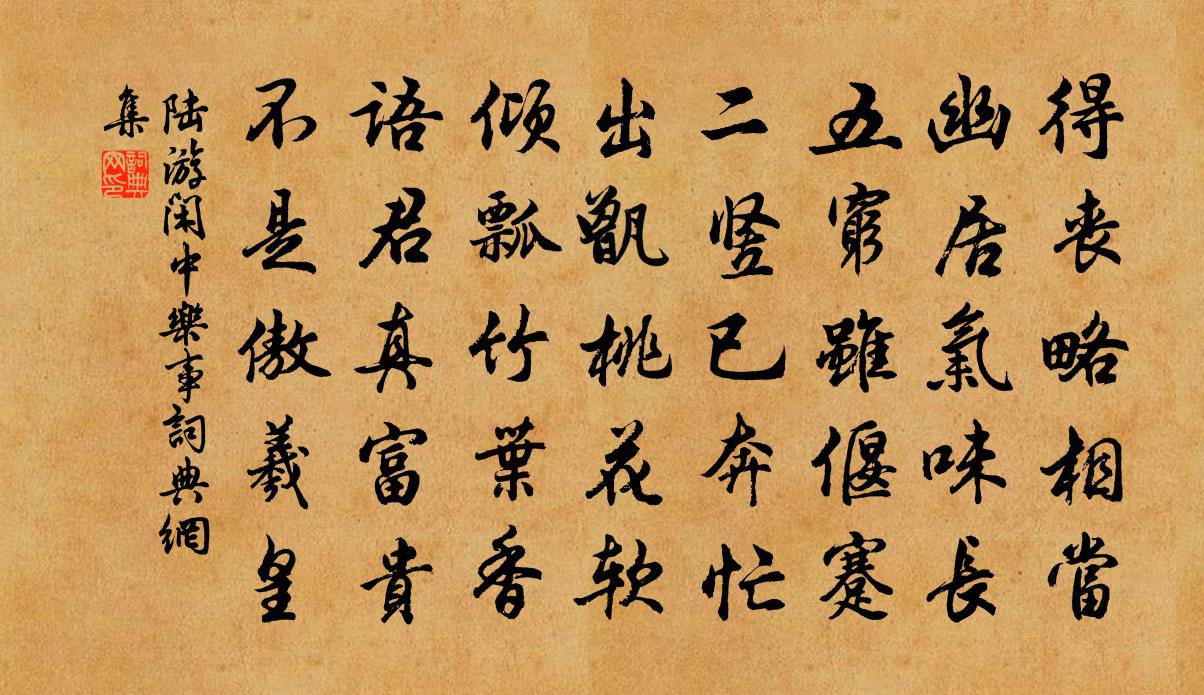 得丧略相當
幽居氣味長
五窮雖偃蹇
二竖已奔忙
出甑桃花软
倾瓢竹葉香
語君真富貴
不是傲羲皇
陆游閑中樂事詞典網
集
詞典
网印